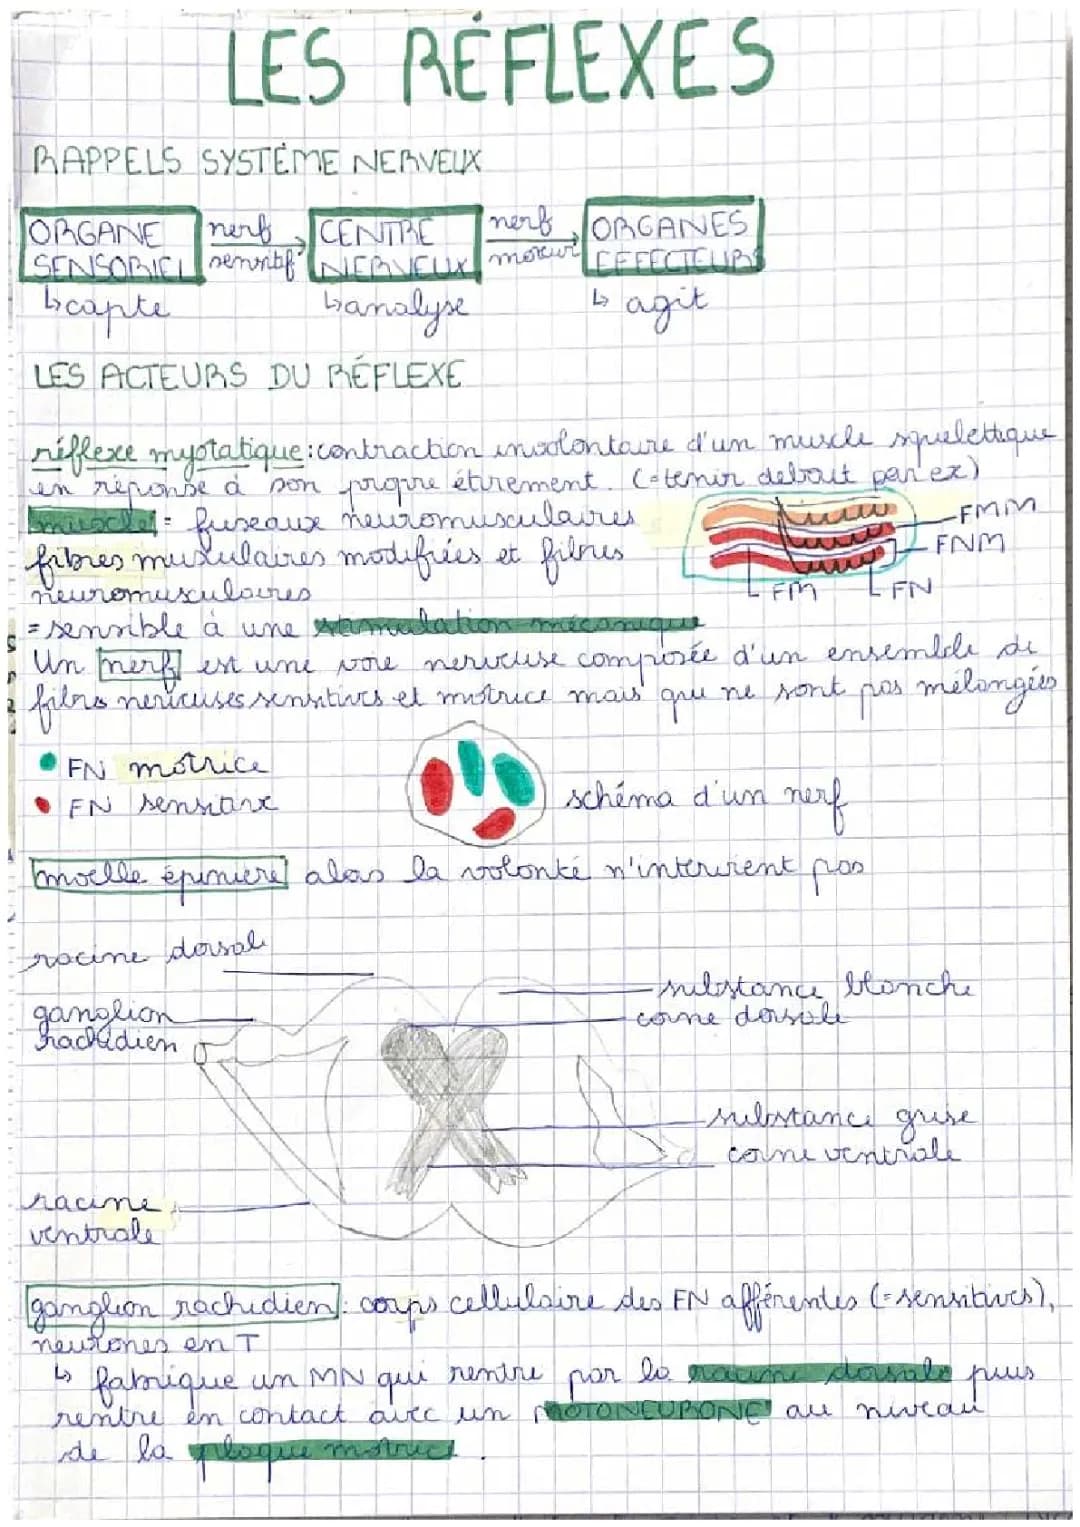 LES RÉFLEXES
RAPPELS SYSTÈME NERVEUX
ORGANE SENSORIEL nerf sensitif CENTRE NERVEUX nerf moteur ORGANES EFFECTEURS
↳ capte ↳ analyse ↳ agit
LES ACTEURS DU RÉFLEXE
réflexe myotatique : contraction involontaire d'un muscle squelettique
en réponse à son propre étirement. (= tenir debout par ex)
muscle = fuseaux neuromusculaires
fibres musculaires modifiées et fibres
neuromusculaires
FMM
FNM
FM FN
= sensible à une stimulation mécanique
Un nerf est une voie nerveuse composée d'un ensemble de
fibres nerveuses sensitives et motrice mais qui ne sont pas mélangées
• FN motrice
• FN sensitive
schéma d'un nerf
moelle épinière alors la volonté n'intervient pas
racine dorsale
substance blanche
ganglion rachidien
corne dorsale
substance grise
corne ventrale
racine
ventrale
ganglion rachidien : corps cellulaire des FN afférentes (= sensitives),
neurones en T
↳ fabrique un MN qui rentre par la racine dorsale puis
rentre en contact avec un MOTONEURONE au niveau
de la plaque motrice.